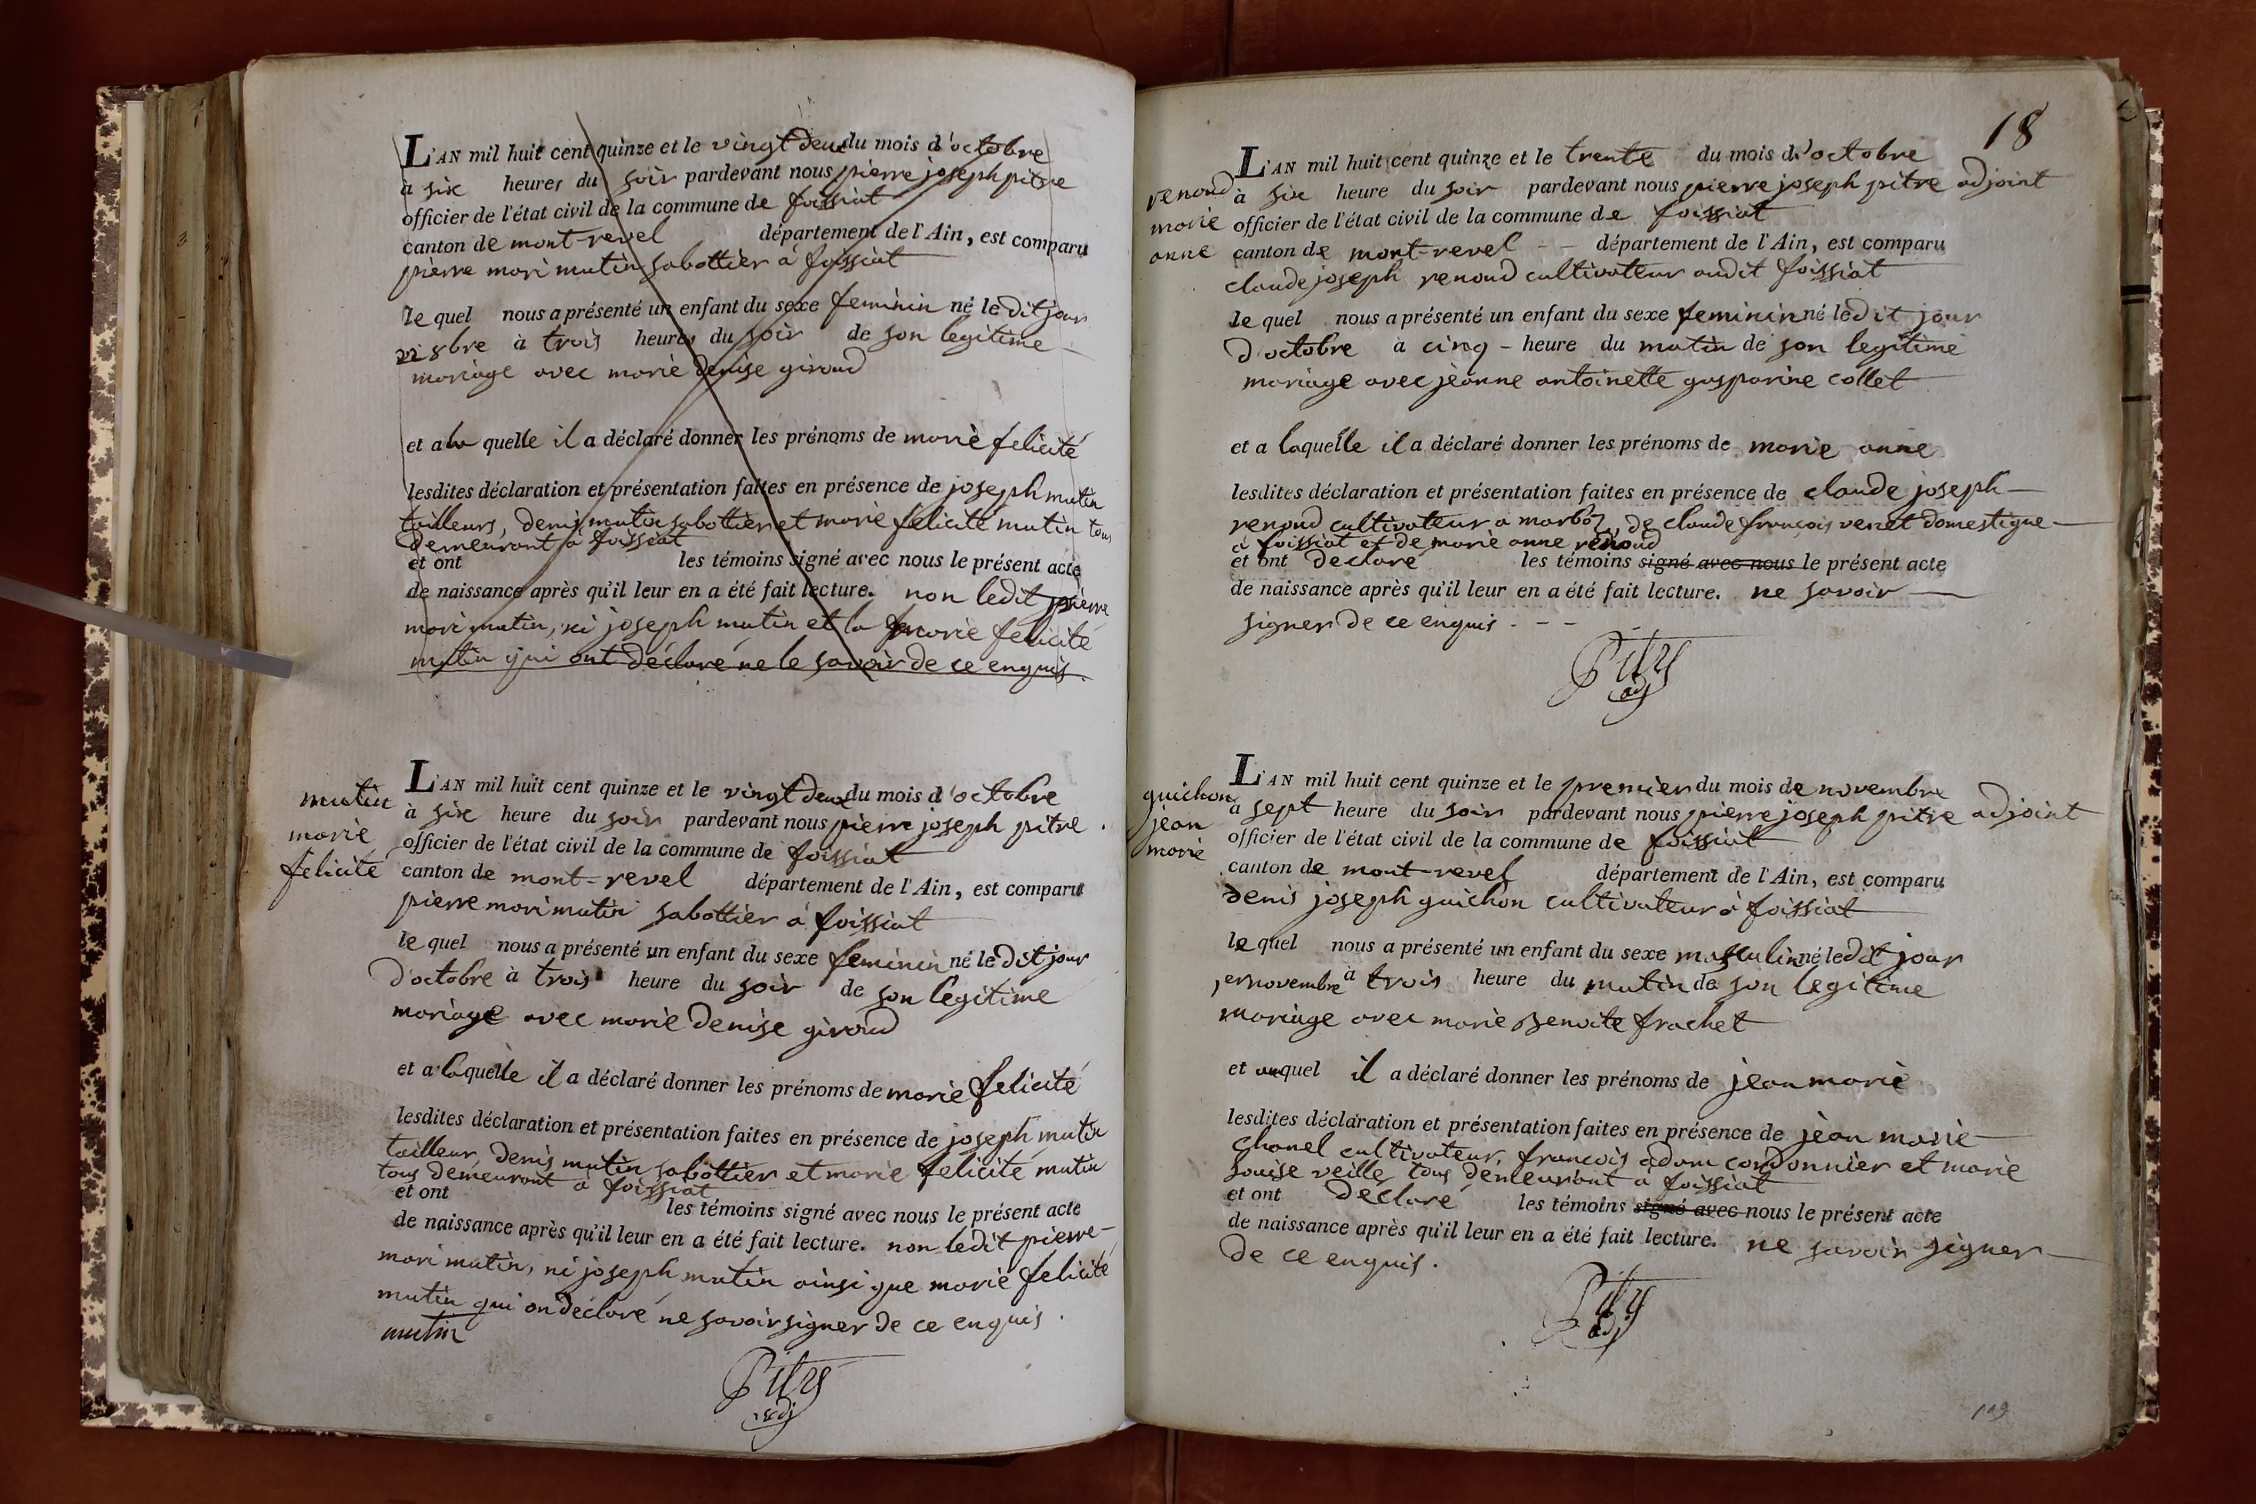 L'AN mil huit cent quinze et le vingt deux du mois d'octobre
à six heures du soir pardevant nous pierre joseph pitre
officier de l'état civil de la commune de foissiat
canton de mont-revel département de l'Ain, est comparu
pierre mari mutin sabottier a foissiat
le quel nous a présenté un enfant du sexe feminin né le dit jour
22 8bre à trois heures du soir de son legitime
mariage avec marie denise giroud
et a la quelle il a déclaré donner les prénoms de marie felicité
lesdites déclaration et présentation faites en présence de joseph mutin
tailleurs, denis mutin sabottier et marie felicité mutin tous
demeurant a foissiat
et ont les témoins signé avec nous le présent acte
de naissance après qu'il leur en a été fait lecture. non ledit pierre
mari mutin, ni joseph mutin et la marie felicité
mutin qui ont déclaré ne le savoir de ce enquis.
mutin
marie
felicité
L'AN mil huit cent quinze et le vingt deux du mois d'octobre
à six heure du soir pardevant nous pierre joseph pitre
officier de l'état civil de la commune de foissiat
canton de mont-revel département de l'Ain, est comparu
pierre mari mutin sabottier a foissiat
le quel nous a présenté un enfant du sexe feminin né le dit jour
d'octobre à trois heure du soir de son legitime
mariage avec marie denise giroud
et a laquelle il a déclaré donner les prénoms de marie felicité
lesdites déclaration et présentation faites en présence de joseph mutin
tailleur, denis mutin sabottier et marie felicité mutin
tous demeurant a foissiat
et ont les témoins signé avec nous le présent acte
de naissance après qu'il leur en a été fait lecture. non ledit pierre
mari mutin, ni joseph mutin ainsi que marie felicité
mutin qui on déclaré ne savoir signer de ce enquis.
mutin
Pitre
adj
18
renoud
marie
anne
L'AN mil huit cent quinze et le trente du mois d'octobre
à six heure du soir pardevant nous pierre joseph pitre adjoint
officier de l'état civil de la commune de foissiat
canton de mont-revel - - département de l'Ain, est comparu
claude joseph renoud cultivateur audit foissiat
le quel nous a présenté un enfant du sexe feminin né ledit jour
d'octobre à cinq - heure du matin de son legitime
mariage avec jeanne antoinette gasparine collet
et a laquelle il a déclaré donner les prénoms de marie anne
lesdites déclaration et présentation faites en présence de claude joseph
renoud cultivateur a marboz, de claude françois venet domestique
a foissiat et de marie anne renoud
et ont declaré les témoins signé avec nous le présent acte
de naissance après qu'il leur en a été fait lecture. ne savoir
signer de ce enquis. - -
Pitre
adj
guichon
jean
marie
L'AN mil huit cent quinze et le premier du mois de novembre
à sept heure du soir pardevant nous pierre joseph pitre adjoint
officier de l'état civil de la commune de foissiat
canton de mont-revel département de l'Ain, est comparu
denis joseph guichon cultivateur a foissiat
le quel nous a présenté un enfant du sexe masculin né ledit jour
1er novembre à trois heure du matin de son legitime
mariage avec marie Benoite frachet
et auquel il a déclaré donner les prénoms de jean marie
lesdites déclaration et présentation faites en présence de jean marie
chanel cultivateur, francois adam cordonnier et marie
louise veille tous demeurant a foissiat
et ont declaré les témoins signé avec nous le présent acte
de naissance après qu'il leur en a été fait lecture. ne savoir signer
de ce enquis.
Pitre
adj
119